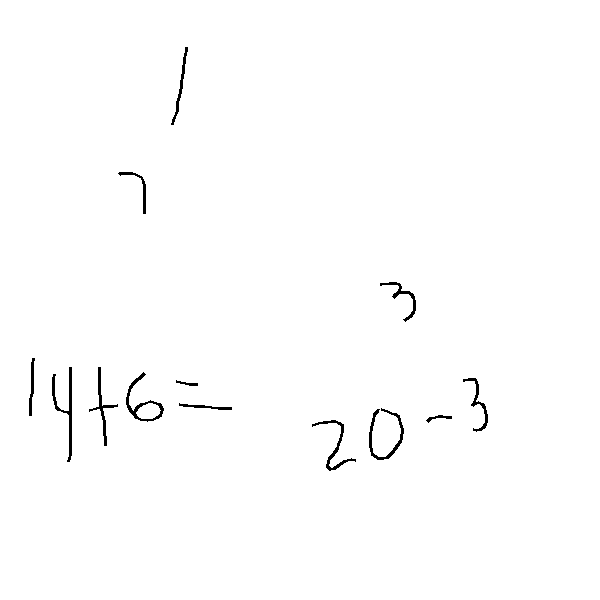 /
7
3
14+6= 20-3